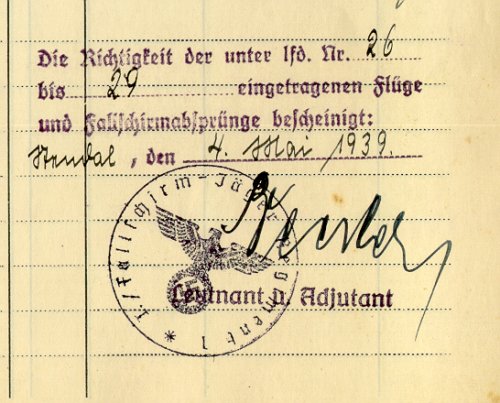 Die Richtigkeit der unter lfd. Nr. 26
bis 29 eingetragenen Flüge
und Fallschirmabsprünge bescheinigt:
Stendal, den 4. Mai 1939.
I./Fallschirm-Jäger Regiment 1 *
Leutnant u. Adjutant